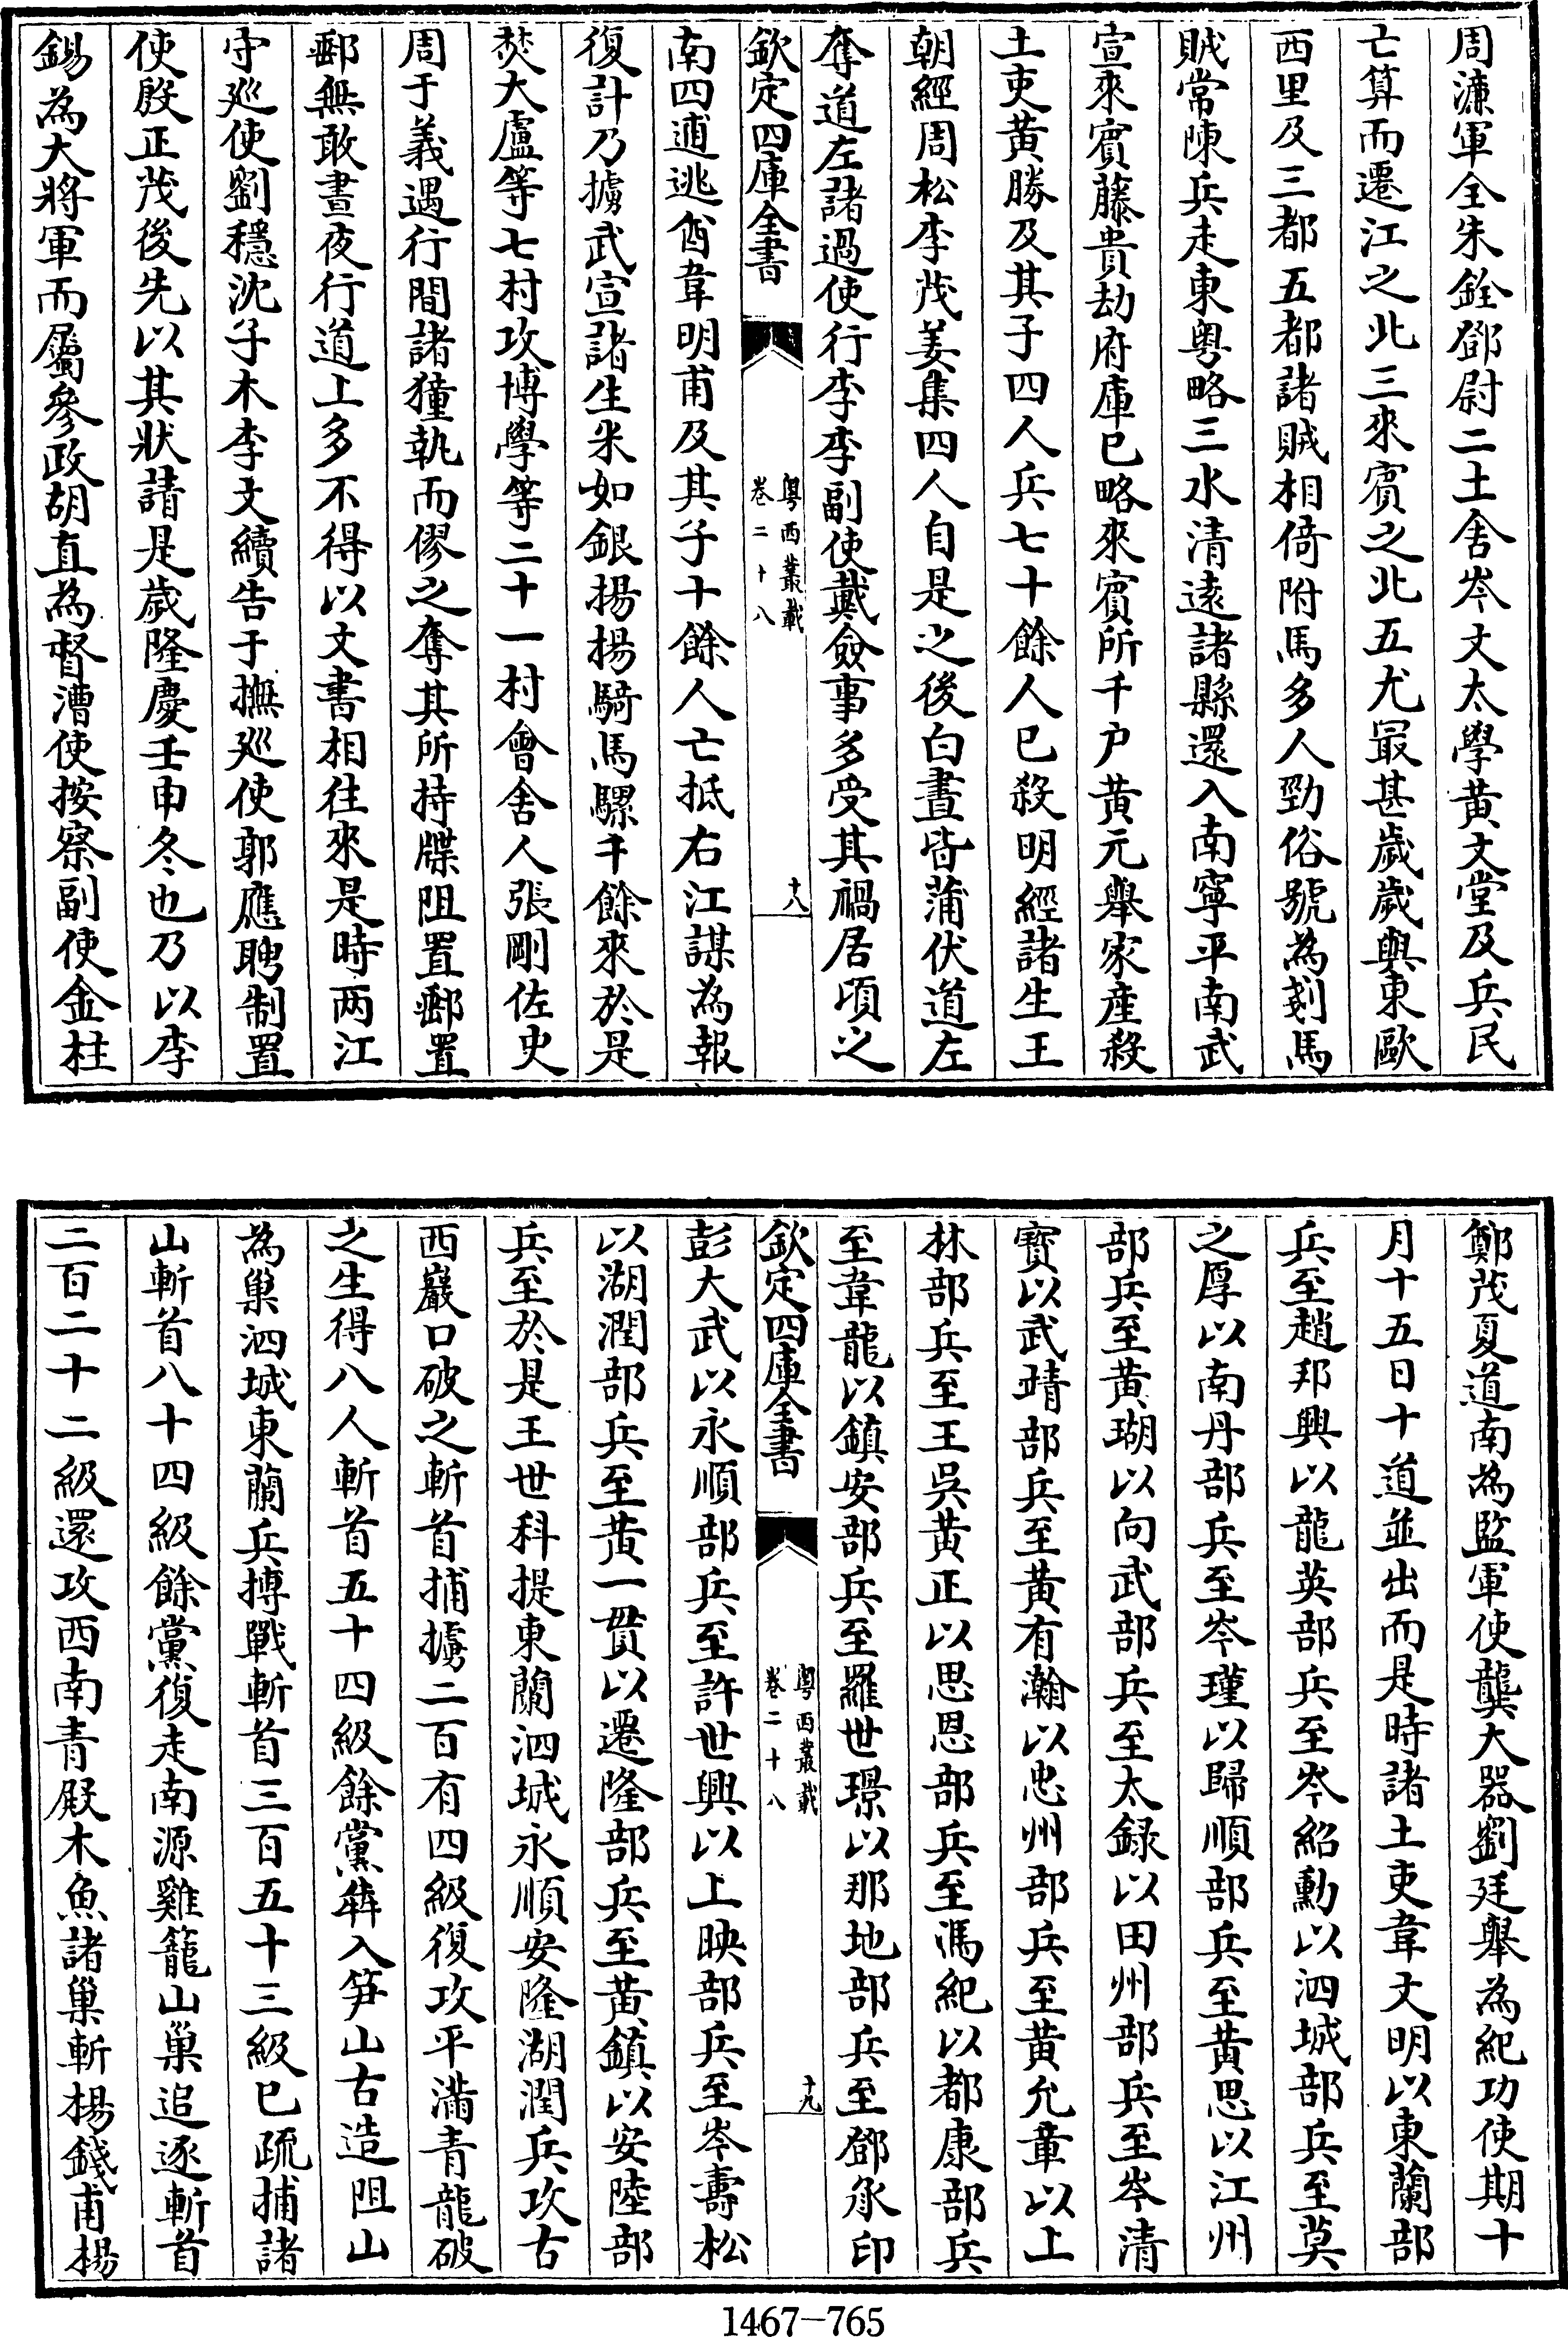 周濂軍全朱銓鄧尉二土舍岑文太學黄文堂及兵民
亡算而遷江之北三來賓之北五尤最甚歲歲與東歐
西里及三都五都諸賊相倚附馬多人勁俗號為剗馬
賊常陳兵走東粤略三水清遠諸縣還入南寧平南武
宣來賓藤貴劫府庫已略來賓所千户黄元舉家產殺
土吏黄勝及其子四人兵七十餘人已殺明經諸生王
朝經周松李茂姜集四人自是之後白晝皆蒲伏道左
奪道左諸過使行李李副使戴僉事多受其禍居頃之
欽定四庫全書
粤西叢載
卷二十八
十八
南四逋逃酋韋明甫及其子十餘人亡抵右江謀為報
復計乃擄武宣諸生朱如銀揚揚騎馬騾千餘來於是
焚大盧等七村攻博學等二十一村會舍人張剛佐史
周于義遇行間諸獞執而僇之奪其所持牒阻置郵置
郵無敢晝夜行道上多不得以文書相往來是時兩江
守巡使劉穩沈子木李文續告于撫巡使郭應聘制置
使殷正茂後先以其狀請是歲隆慶壬申冬也乃以李
錫為大將軍而屬參政胡直為督漕使按察副使金柱
鄭茂夏道南為監軍使龔大器劉廷舉為紀功使期十
月十五日十道並出而是時諸土吏韋文明以東蘭部
兵至趙邦興以龍英部兵至岑紹勳以泗城部兵至莫
之厚以南丹部兵至岑瑾以歸順部兵至黄思以江州
部兵至黄瑚以向武部兵至太録以田州部兵至岑清
寶以武靖部兵至黄有瀚以忠州部兵至黄允章以上
林部兵至王吳黄正以思恩部兵至馮紀以都康部兵
至韋龍以鎮安部兵至羅世璟以那地部兵至鄧承印
欽定四庫全書
粤西叢載
卷二十八
十九
彭大武以永順部兵至許世興以上映部兵至岑壽松
以湖潤部兵至黄一貫以遷隆部兵至黄鎮以安陸部
兵至於是王世科提東蘭泗城永順安隆湖潤兵攻古
西巖口破之斬首捕擄二百有四級復攻平滿青龍破
之生得八人斬首五十四級餘黨犇入笋山古造阻山
為巢泗城東蘭兵搏戰斬首三百五十三級已疏捕諸
山斬首八十四級餘黨復走南源雞籠山巢追逐斬首
二百二十二級還攻西南青殿木魚諸巢斬楊錢甫楊
1467-765